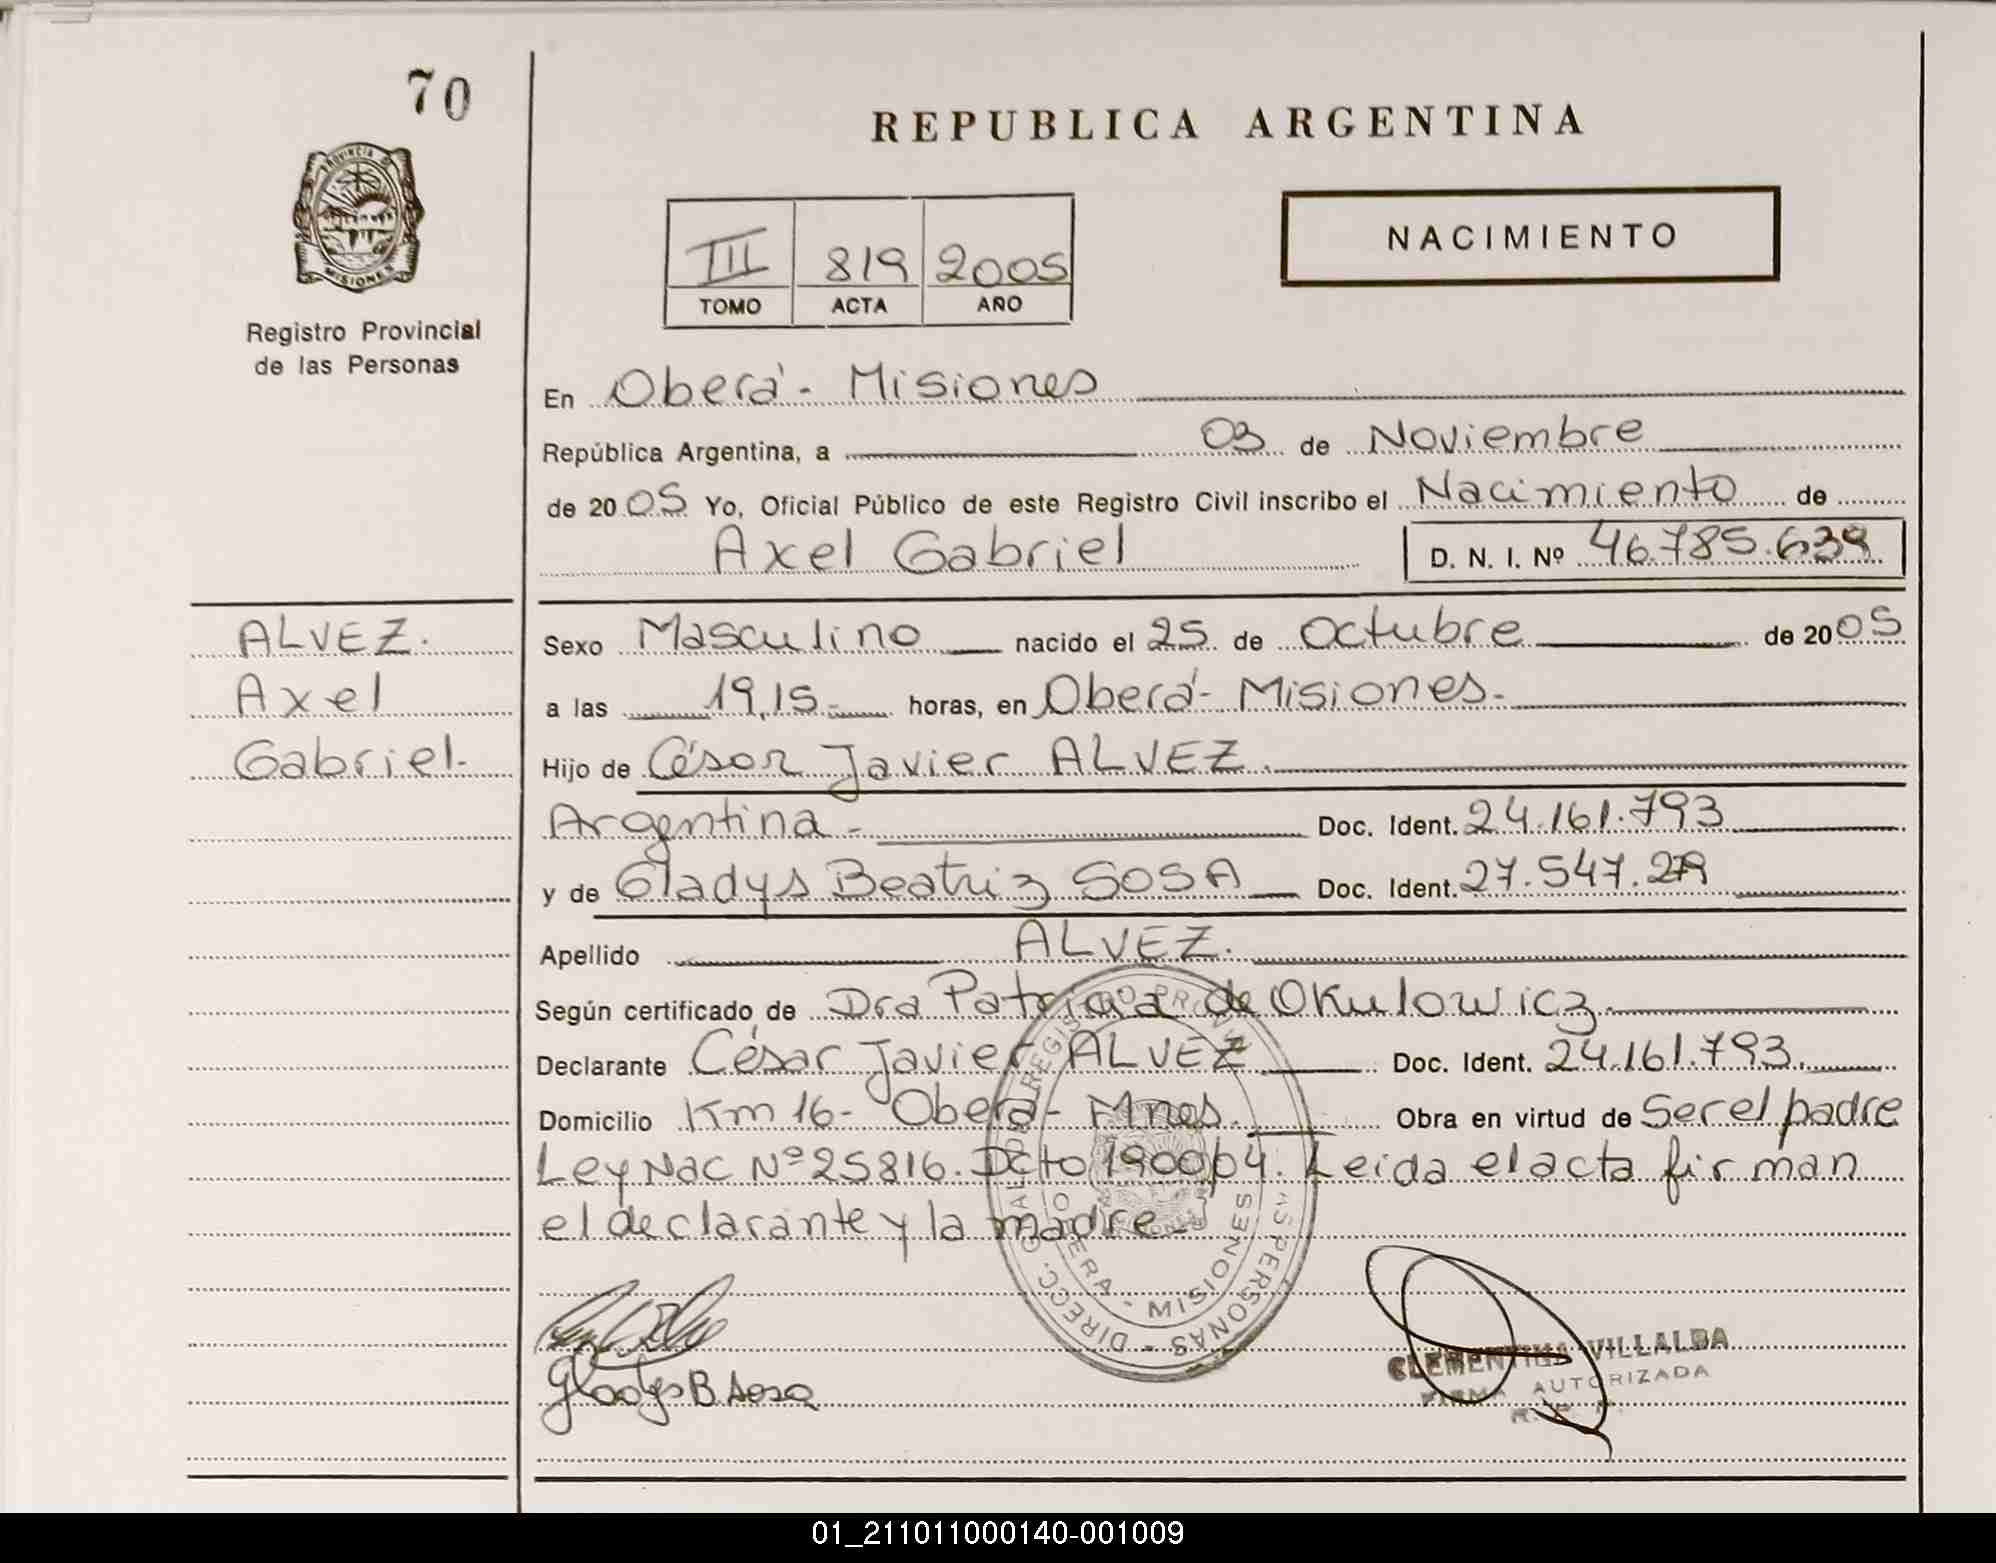 70
REPUBLICA ARGENTINA
PROVINCIA D
MISIONES
Registro Provincial
de las Personas
III 819 2005
TOMO ACTA AÑO
NACIMIENTO
En Oberá - Misiones
República Argentina, a 03 de Noviembre
de 2005 Yo, Oficial Público de este Registro Civil inscribo el Nacimiento de
Axel Gabriel D. N. I. Nº 46.785.639
ALVEZ.
Axel
Gabriel-
Sexo Masculino nacido el 25 de Octubre de 2005
a las 19,15- horas, en Oberá- Misiones-
Hijo de César Javier ALVEZ.
Argentina- Doc. Ident. 24.161.793
y de Gladys Beatriz SOSA Doc. Ident. 27.547.
Apellido ALVEZ.
Según certificado de Dra Patricia de Okulowicz
Declarante César Javier ALVEZ Doc. Ident. 24.161.793.
Domicilio Km 16- Oberá- Mnes. Obra en virtud de Ser el padre
Ley Nac Nº 25816. Dcto 1900/04. Leida el acta firman
el declarante y la madre-
DIRECC. GRAL. DE REGISTRO PROVINC. LAS PERSONAS -
OBERA - MISIONES
Gladys B Sosa
CLEMENTINA VILLALBA
FIRMA AUTORIZADA
01_211011000140-001009